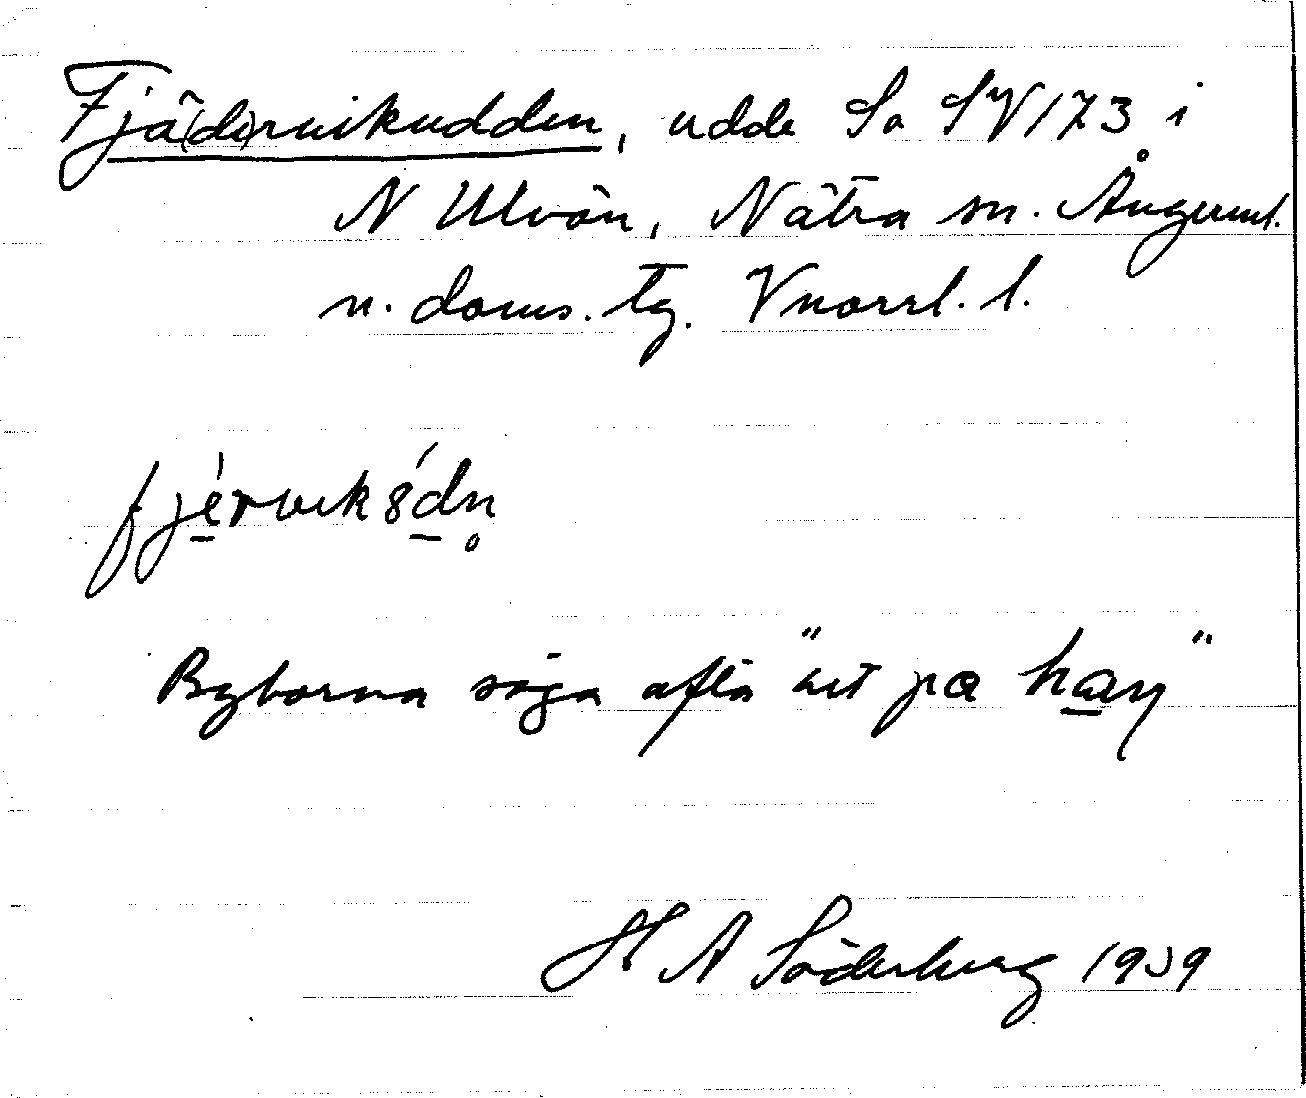 Fjä(de)rvikudden, udde So SV 173 i
N Ulvön, Nätra sn. Ångerml.
n. doms. tg. Vnorrl. l.
fjérvik8́dn̥
Byborna säga ofta "ut på han"
H A Söderberg 1939